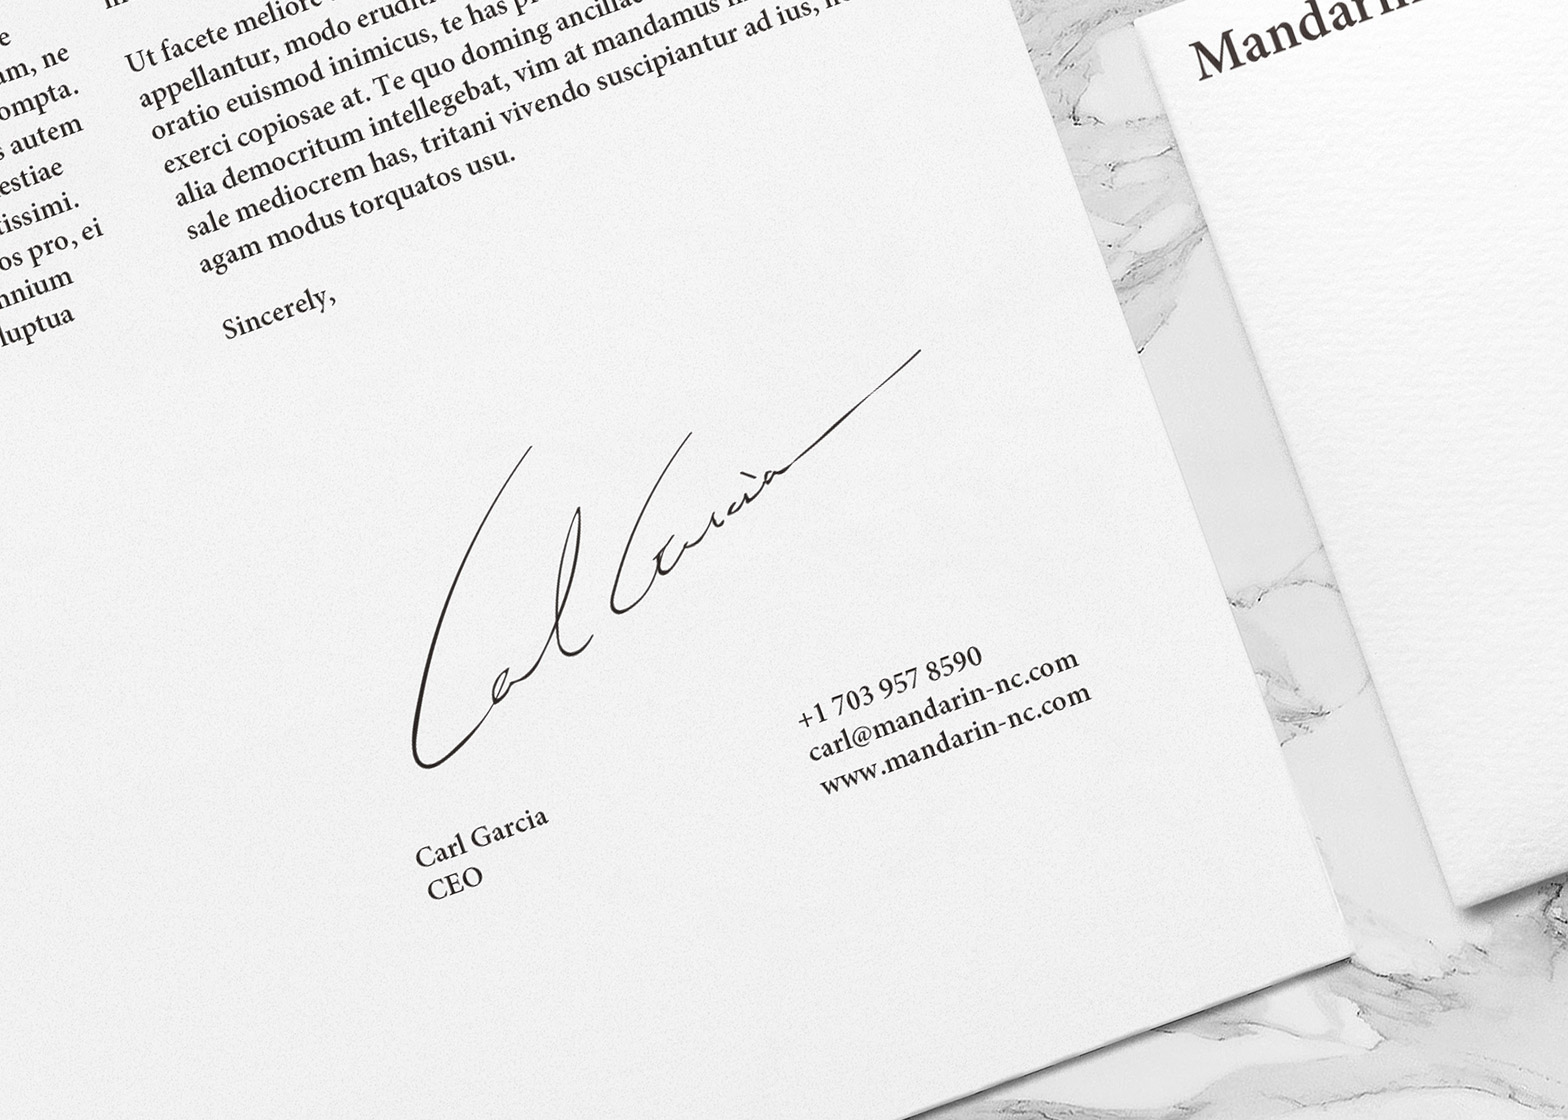 am, ne
ompta.
autem
estiae
tissimi.
os pro, ei
nnium
luptua
Ut facete meliore
appellantur, modo
oratio euismod inimicus, te has
exerci copiosae at. Te quo doming
alia democritum intellegebat, vim at mandamus
sale mediocrem has, tritani vivendo suscipiantur ad ius,
agam modus torquatos usu.
Sincerely,
Carl Garcia
Carl Garcia
CEO
+1 703 957 8590
carl@mandarin-nc.com
www.mandarin-nc.com
Mandarin